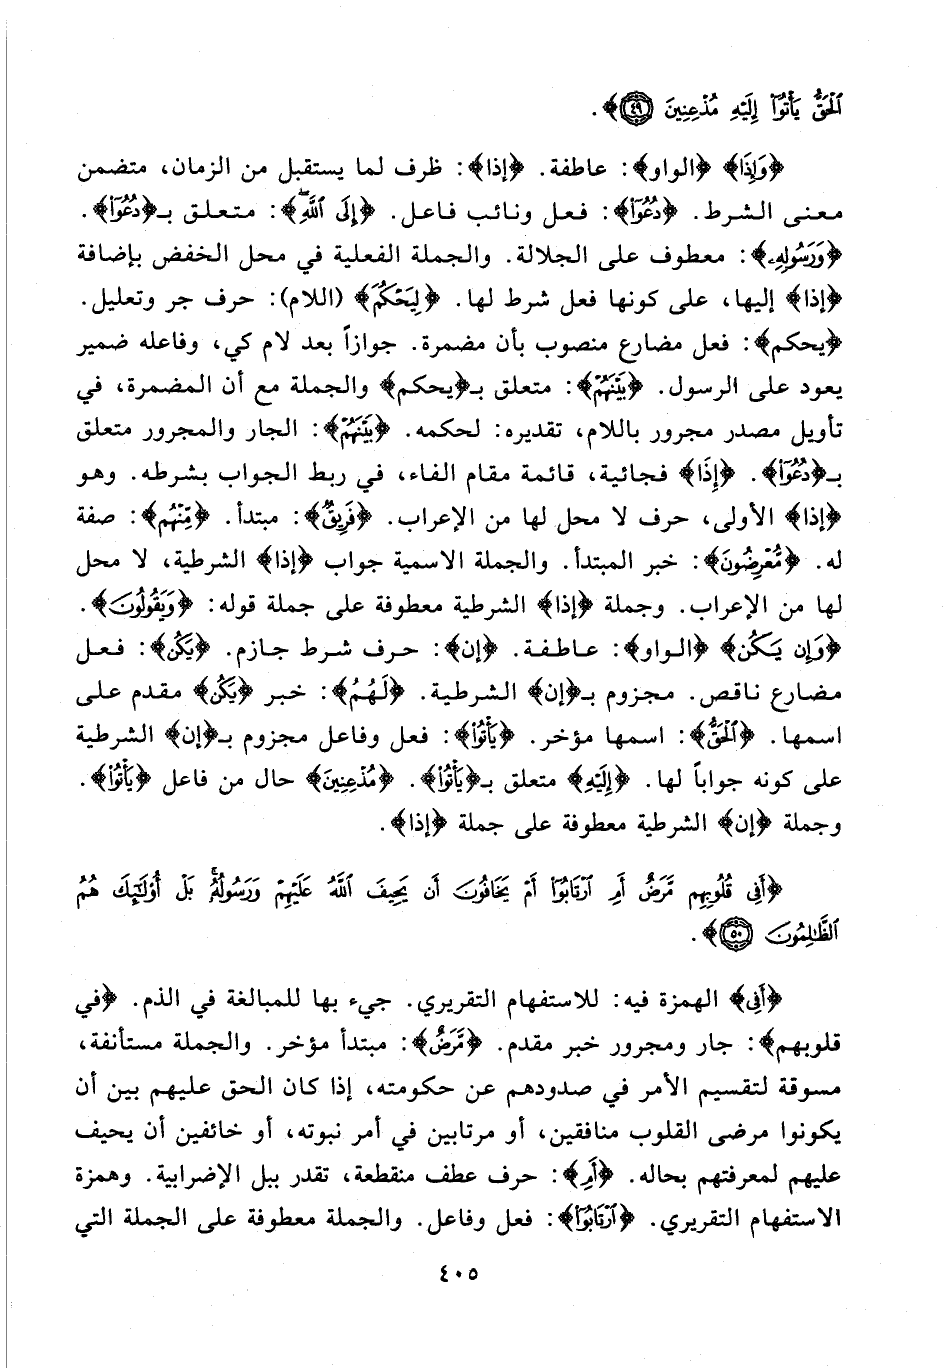 ٱلْحَقُّ يَأْتُوٓا۟ إِلَيْهِ مُذْعِنِينَ ﴿٤٩﴾.
﴿وَإِذَا﴾ ﴿الواو﴾: عاطفة. ﴿إذا﴾: ظرف لما يستقبل من الزمان، متضمن
معنى الشرط. ﴿دُعُوٓا۟﴾: فعل ونائب فاعل. ﴿إِلَى ٱللَّهِ﴾: متعلق بـ﴿دُعُوٓا۟﴾.
﴿وَرَسُولِهِۦ﴾: معطوف على الجلالة. والجملة الفعلية في محل الخفض بإضافة
﴿إذا﴾ إليها، على كونها فعل شرط لها. ﴿لِيَحْكُمَ﴾ (اللام): حرف جر وتعليل.
﴿يحكم﴾: فعل مضارع منصوب بأن مضمرة. جوازاً بعد لام كي، وفاعله ضمير
يعود على الرسول. ﴿بَيْنَهُمْ﴾: متعلق بـ﴿يحكم﴾ والجملة مع أن المضمرة، في
تأويل مصدر مجرور باللام، تقديره: لحكمه. ﴿بَيْنَهُمْ﴾: الجار والمجرور متعلق
بـ﴿دُعُوٓا۟﴾. ﴿إِذَا﴾ فجائية، قائمة مقام الفاء، في ربط الجواب بشرطه. وهو
﴿إذا﴾ الأولى، حرف لا محل لها من الإعراب. ﴿فَرِيقٌ﴾: مبتدأ. ﴿مِّنْهُم﴾: صفة
له. ﴿مُّعْرِضُونَ﴾: خبر المبتدأ. والجملة الاسمية جواب ﴿إذا﴾ الشرطية، لا محل
لها من الإعراب. وجملة ﴿إذا﴾ الشرطية معطوفة على جملة قوله: ﴿وَيَقُولُونَ﴾.
﴿وَإِن يَكُن﴾ ﴿الواو﴾: عاطفة. ﴿إن﴾: حرف شرط جازم. ﴿يَكُن﴾: فعل
مضارع ناقص. مجزوم بـ﴿إن﴾ الشرطية. ﴿لَهُمُ﴾: خبر ﴿يَكُن﴾ مقدم على
اسمها. ﴿ٱلْحَقُّ﴾: اسمها مؤخر. ﴿يَأْتُوٓا۟﴾: فعل وفاعل مجزوم بـ﴿إن﴾ الشرطية
على كونه جواباً لها. ﴿إِلَيْهِ﴾ متعلق بـ﴿يَأْتُوٓا۟﴾. ﴿مُذْعِنِينَ﴾ حال من فاعل ﴿يَأْتُوٓا۟﴾.
وجملة ﴿إن﴾ الشرطية معطوفة على جملة ﴿إذا﴾.
﴿أَفِى قُلُوبِهِم مَّرَضٌ أَمِ ٱرْتَابُوٓا۟ أَمْ يَخَافُونَ أَن يَحِيفَ ٱللَّهُ عَلَيْهِمْ وَرَسُولُهُۥ ۚ بَلْ أُو۟لَٰٓئِكَ هُمُ
ٱلظَّٰلِمُونَ ﴿٥٠﴾.
﴿أَفِى﴾ الهمزة فيه: للاستفهام التقريري. جيء بها للمبالغة في الذم. ﴿في
قلوبهم﴾: جار ومجرور خبر مقدم. ﴿مَّرَضٌ﴾: مبتدأ مؤخر. والجملة مستأنفة،
مسوقة لتقسيم الأمر في صدودهم عن حكومته، إذا كان الحق عليهم بين أن
يكونوا مرضى القلوب منافقين، أو مرتابين في أمر نبوته، أو خائفين أن يحيف
عليهم لمعرفتهم بحاله. ﴿أَمِ﴾: حرف عطف منقطعة، تقدر ببل الإضرابية. وهمزة
الاستفهام التقريري. ﴿ٱرْتَابُوٓا۟﴾: فعل وفاعل. والجملة معطوفة على الجملة التي
٤٠٥